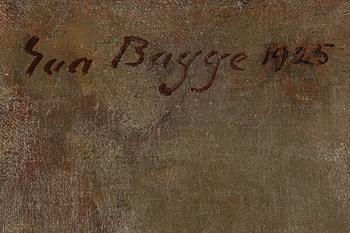 Eva Bagge 1925